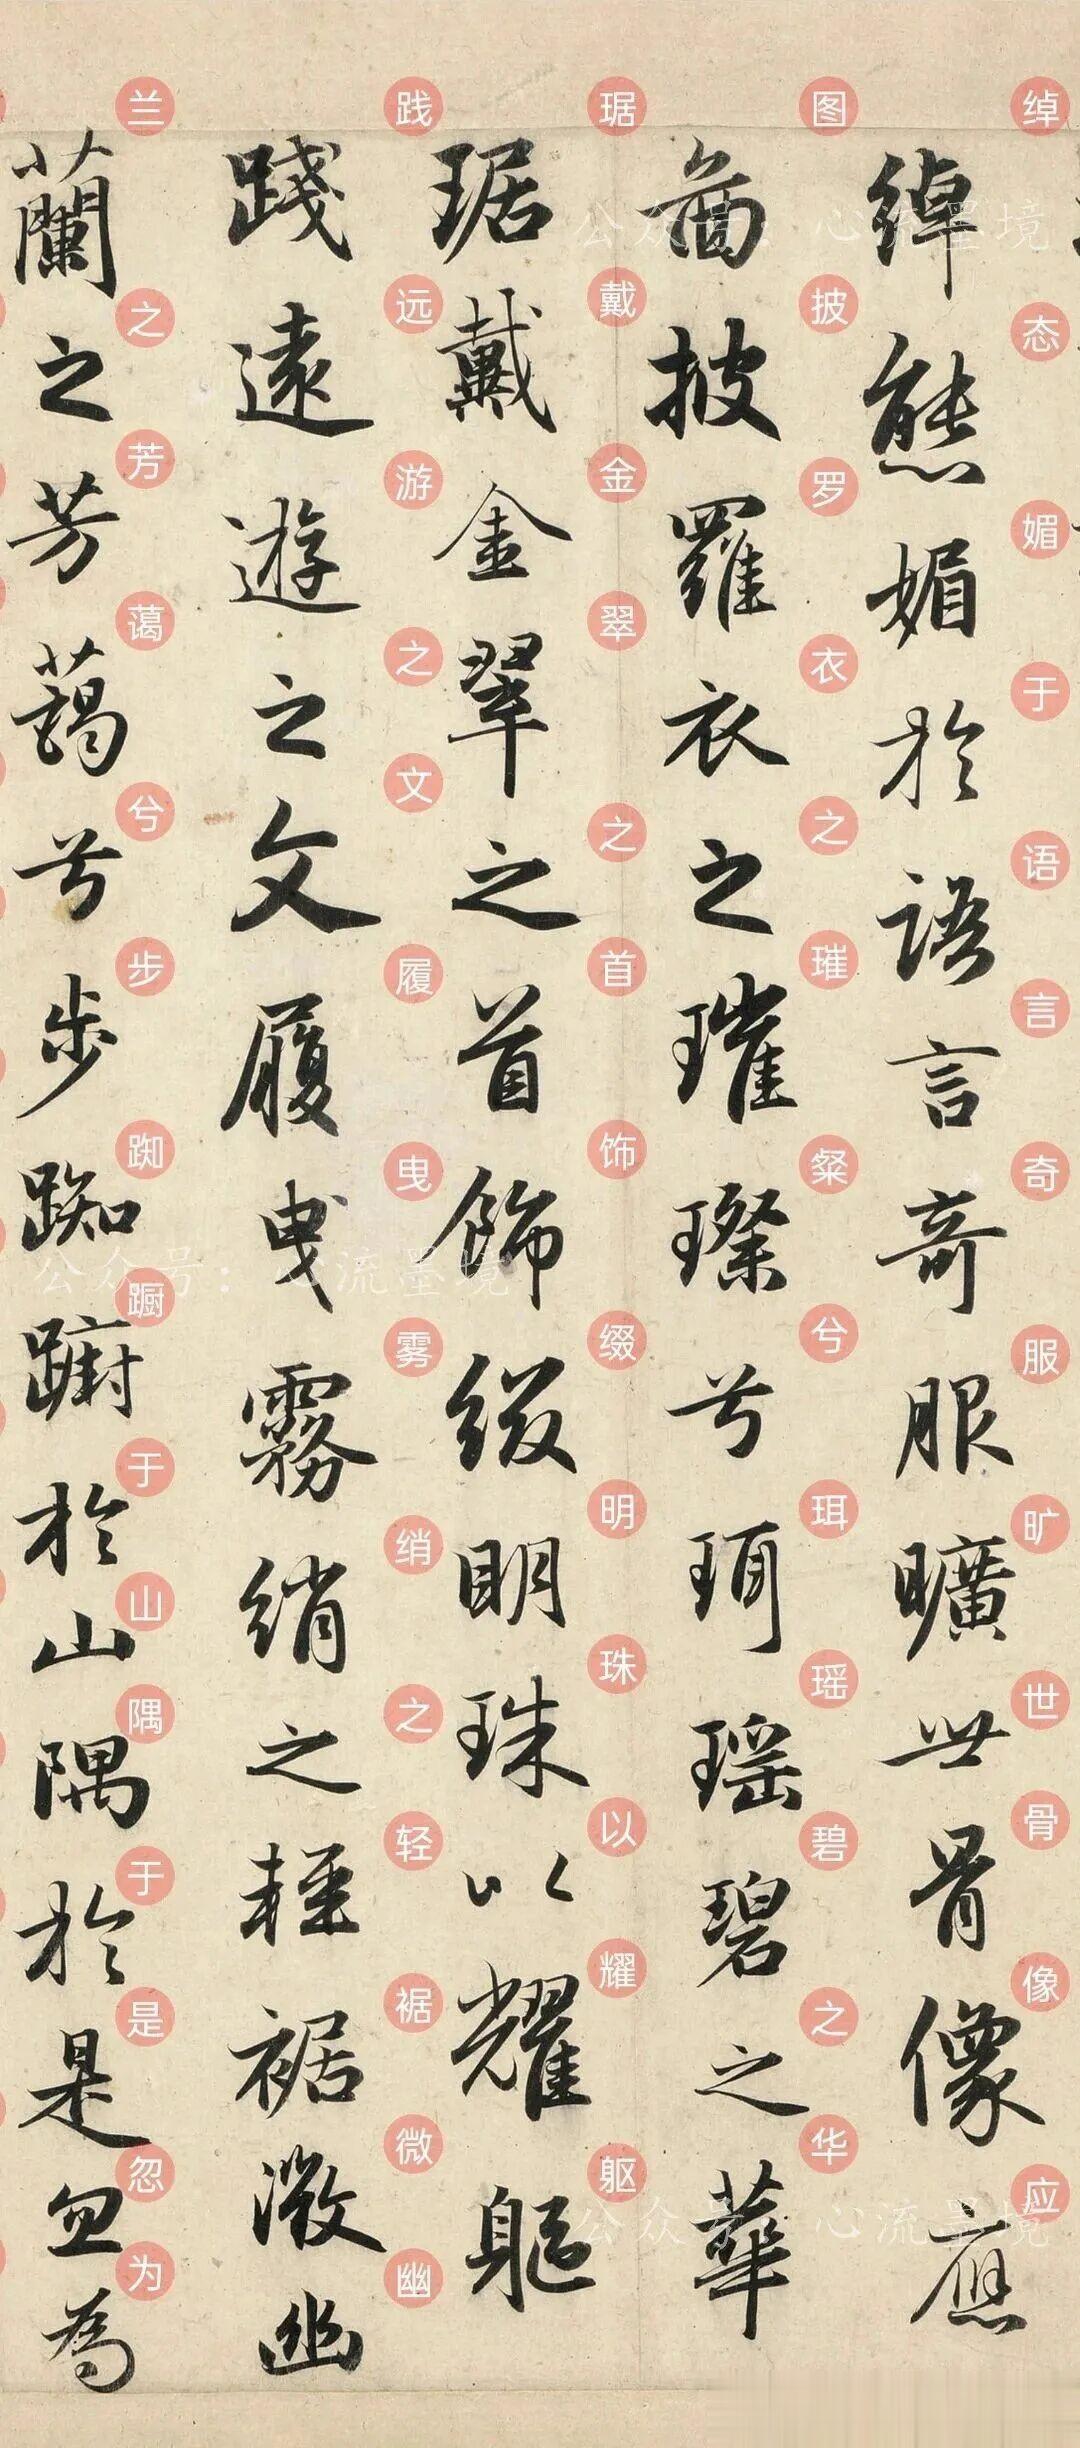 綽態媚於語言奇服曠世骨像應
啚披羅衣之璀璨兮珥瑶碧之華
琚戴金翠之首飾綴明珠以耀軀
踐遠遊之文履曳霧綃之輕裾微幽
蘭之芳藹兮步踟蹰於山隅於是忽為
绰态媚于语言奇服旷世骨像应
图披罗衣之璀粲兮珥瑶碧之华
琚戴金翠之首饰缀明珠以耀躯
践远游之文履曳雾绡之轻裾微幽
兰之芳蔼兮步踟蹰于山隅于是忽为
公众号：心流墨境
公众号：心流墨境
公众号：心流墨境